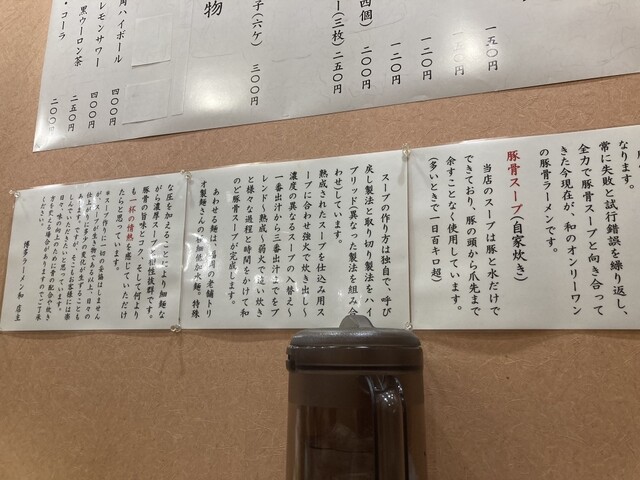 一五〇円
一五〇円
一二〇円
一二〇円
二〇〇円
(三枚) 二五〇円
三〇〇円
角ハイボール 四〇〇円
レモンサワー 四〇〇円
黒ウーロン茶 二五〇円
・コーラ 二〇〇円
なります。
常に失敗と試行錯誤を繰り返し、
全力で豚骨スープと向き合って
きた今現在が、和のオンリーワン
の豚骨ラーメンです。
豚骨スープ(自家炊き)
当店のスープは豚と水だけで
できており、豚の頭から爪先まで
余すことなく使用しています。
(多いときで一日百キロ超)
スープの作り方は独自で、呼び
戻し製法と取り切り製法をハイ
ブリッド(異なった製法を組み合
わせ)しています。
熟成されたスープを仕込み用ス
ープに合わせ強火で炊き出し〜
濃度の異なるスープの入替え〜
一番出汁から三番出汁までをブ
レンド〜熟成〜弱火で追い炊き
と様々な過程と時間をかけて和
のど豚骨スープが完成します。
あわせる麺は、福岡の老舗トリ
オ製麺さんの
麺。特殊
な圧を加えることにより細麺な
がら濃厚スープとの相性抜群です。
豚骨の旨味とコク、そして何より
も一杯の情熱を感じていただけ
たらと思っています。
※スープ作りに一切の妥協はしません
博多ラーメン和 店主